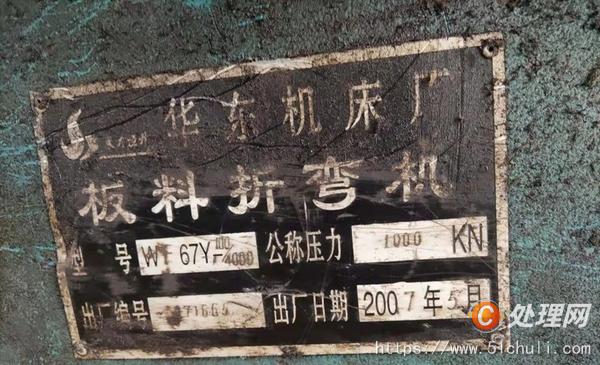 华东机床厂
板料折弯机
型号 W 67Y-100/4000 公称压力 1000 KN
出厂编号 出厂日期 2007年5月
C处理网
https://www.51chuli.com